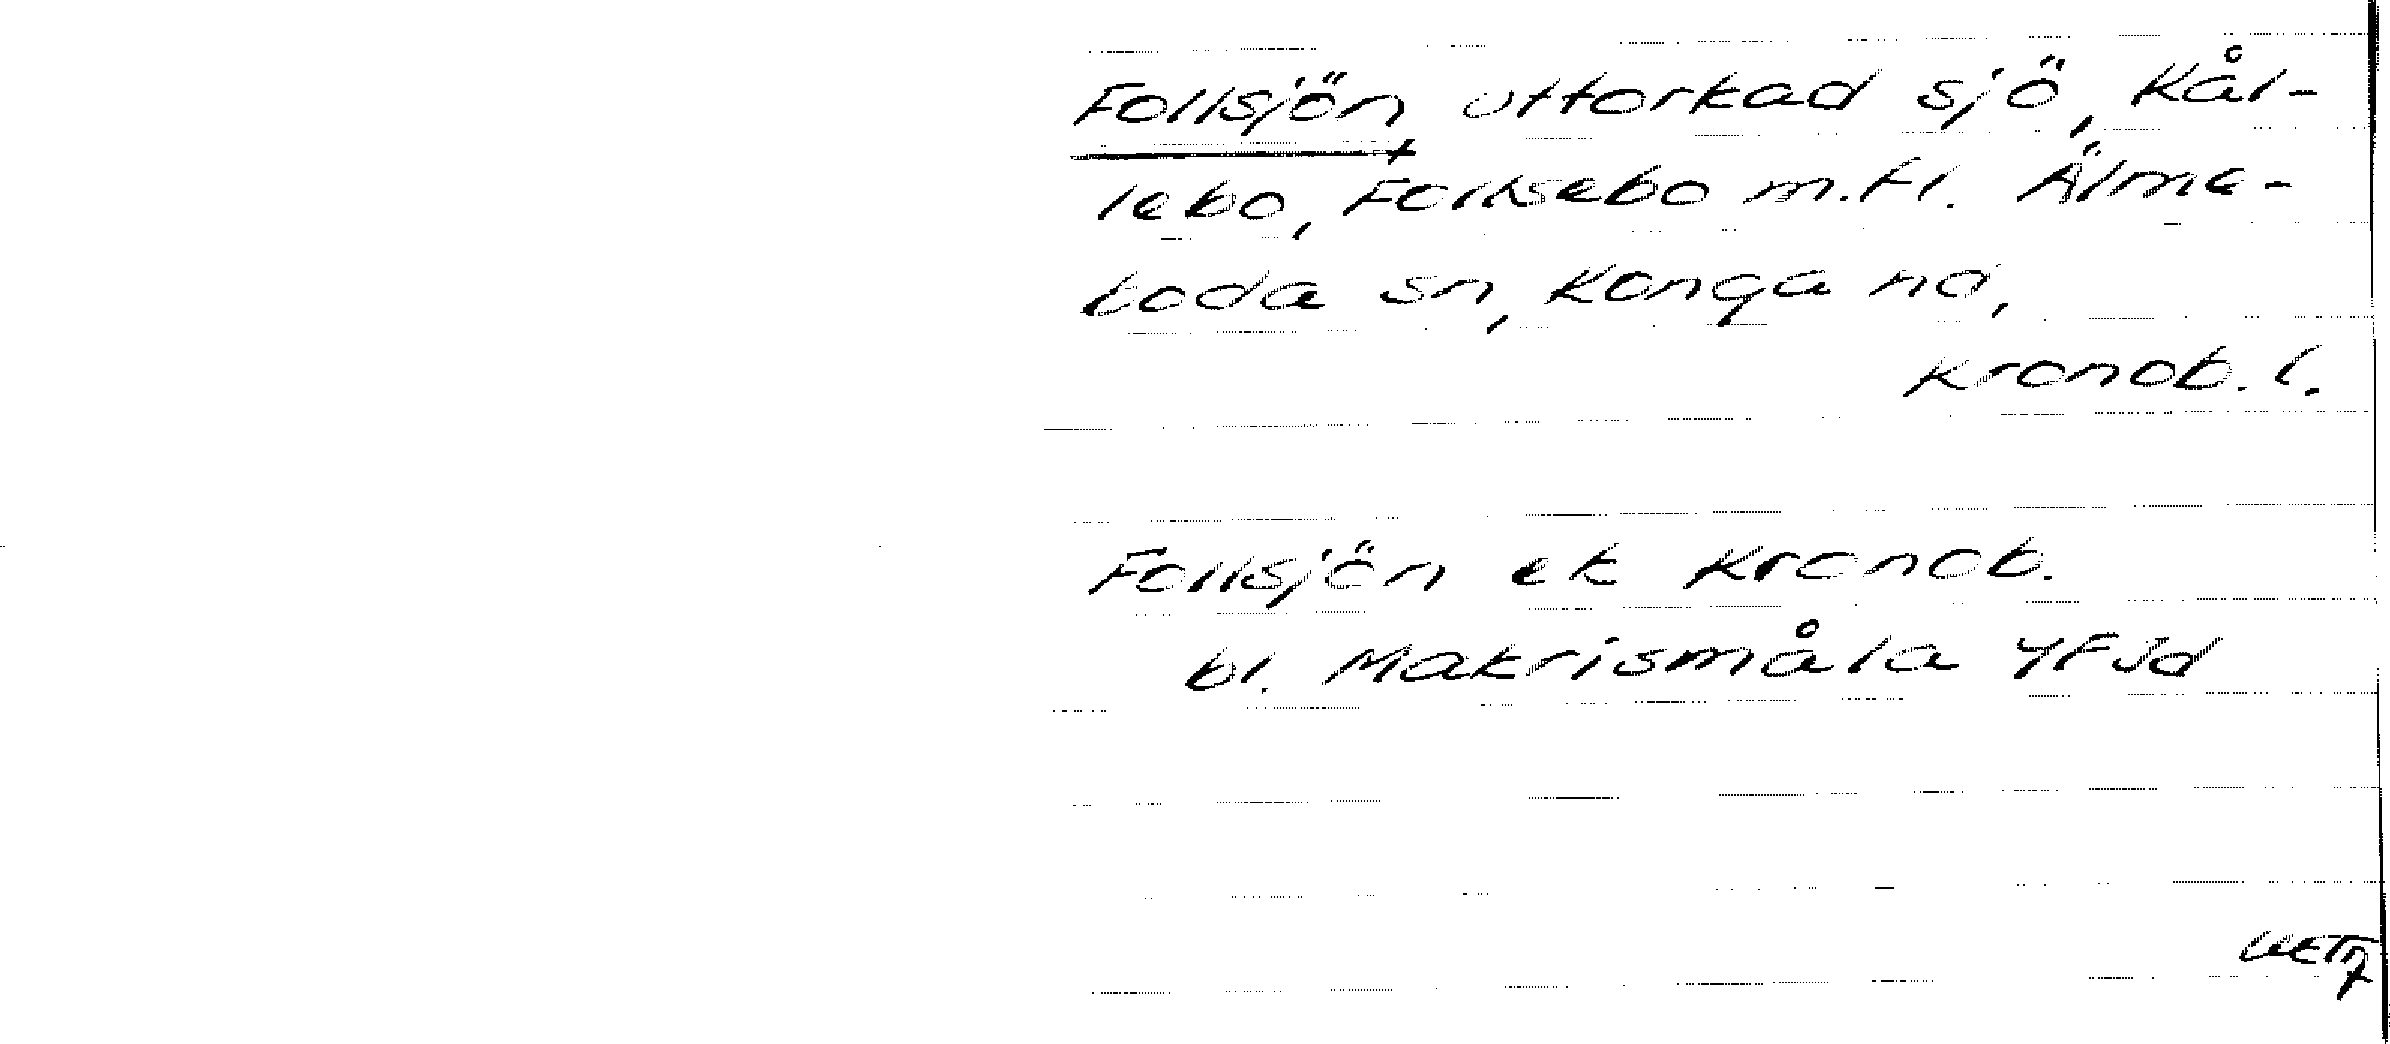 Follsjön, uttorkad sjö, Kål-
lebo, Follsebo m.fl. Älme-
boda sn, Konga hd,
Kronob. l.
Follsjön ek Kronob.
bl. Makrismåla 4F Jd